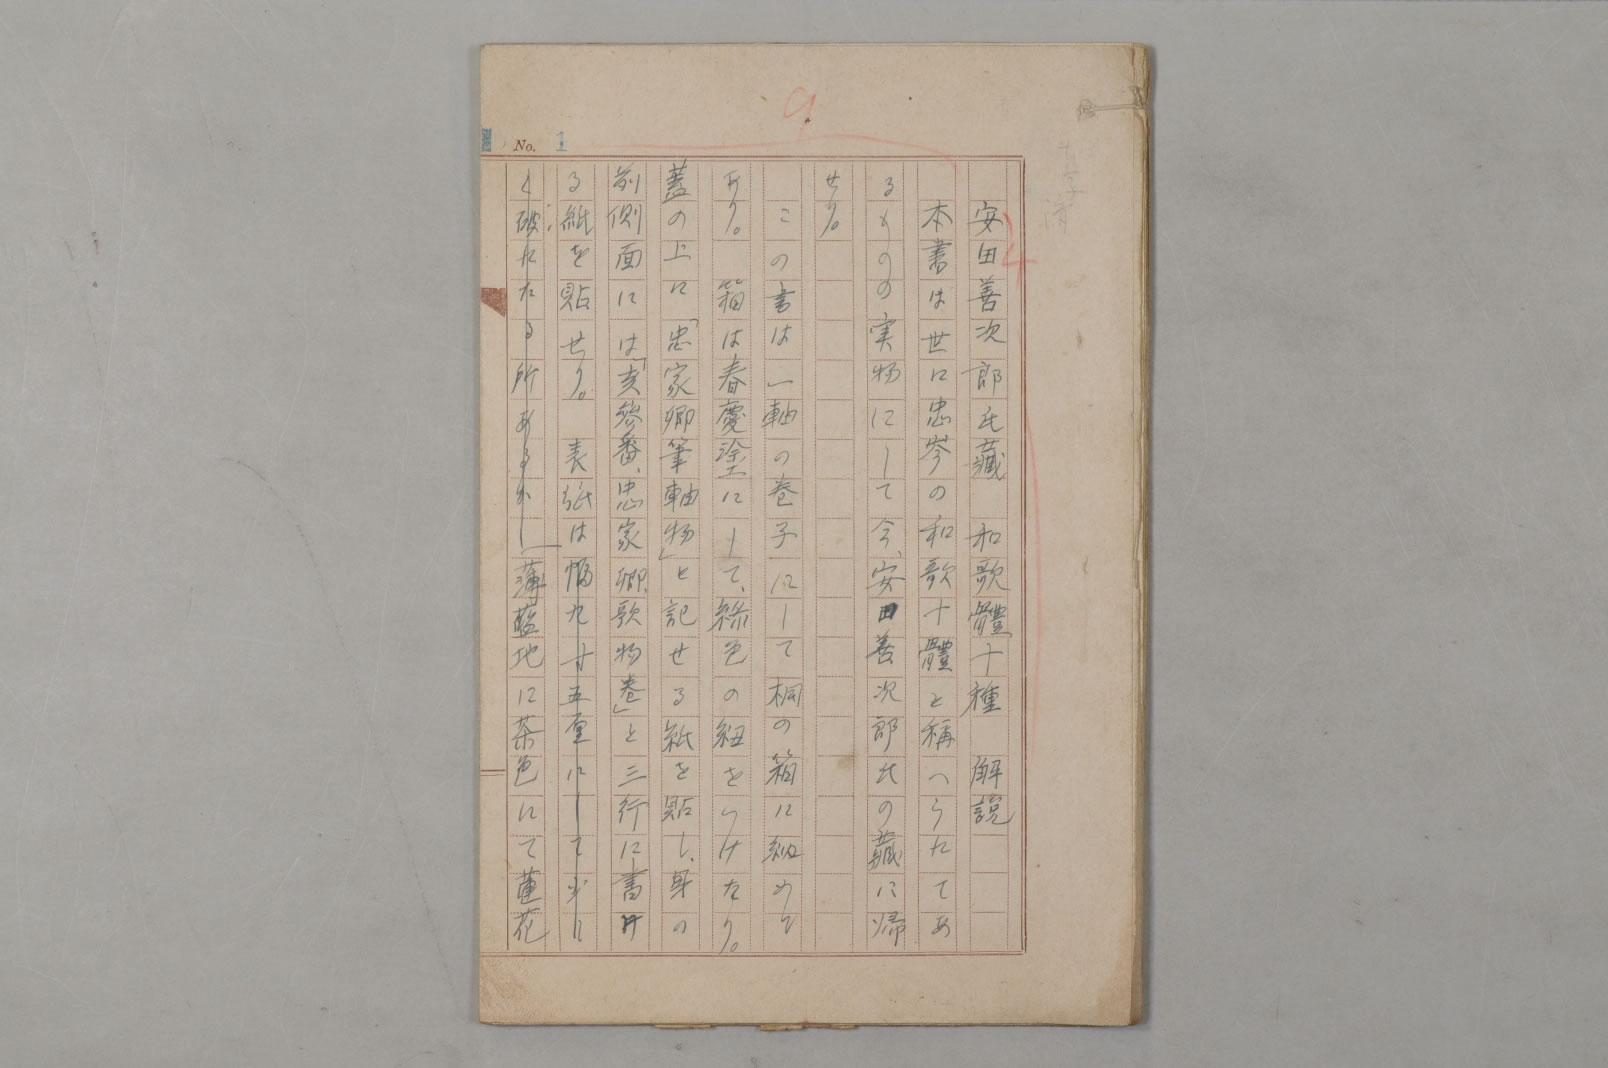 9
No. 1
安田善次郎氏藏　和歌體十種　解説
本書は世に忠岑の和歌十體と稱へられてあ
るものの実物にして今、安田善次郎氏の藏に帰
せり。
この書は一軸の巻子にして桐の箱に納めて
あり。　箱は春慶塗にして、綠色の紐をつけたり。
蓋の上に「忠家卿筆軸物」と記せる紙を貼し、身の
前側面には「亥参番、忠家卿、歌物巻」と三行に書け
る紙を貼せり。　表紙は幅九寸五厘にして少し
く破れたる所あるが　薄藍地に茶色にて蓮花